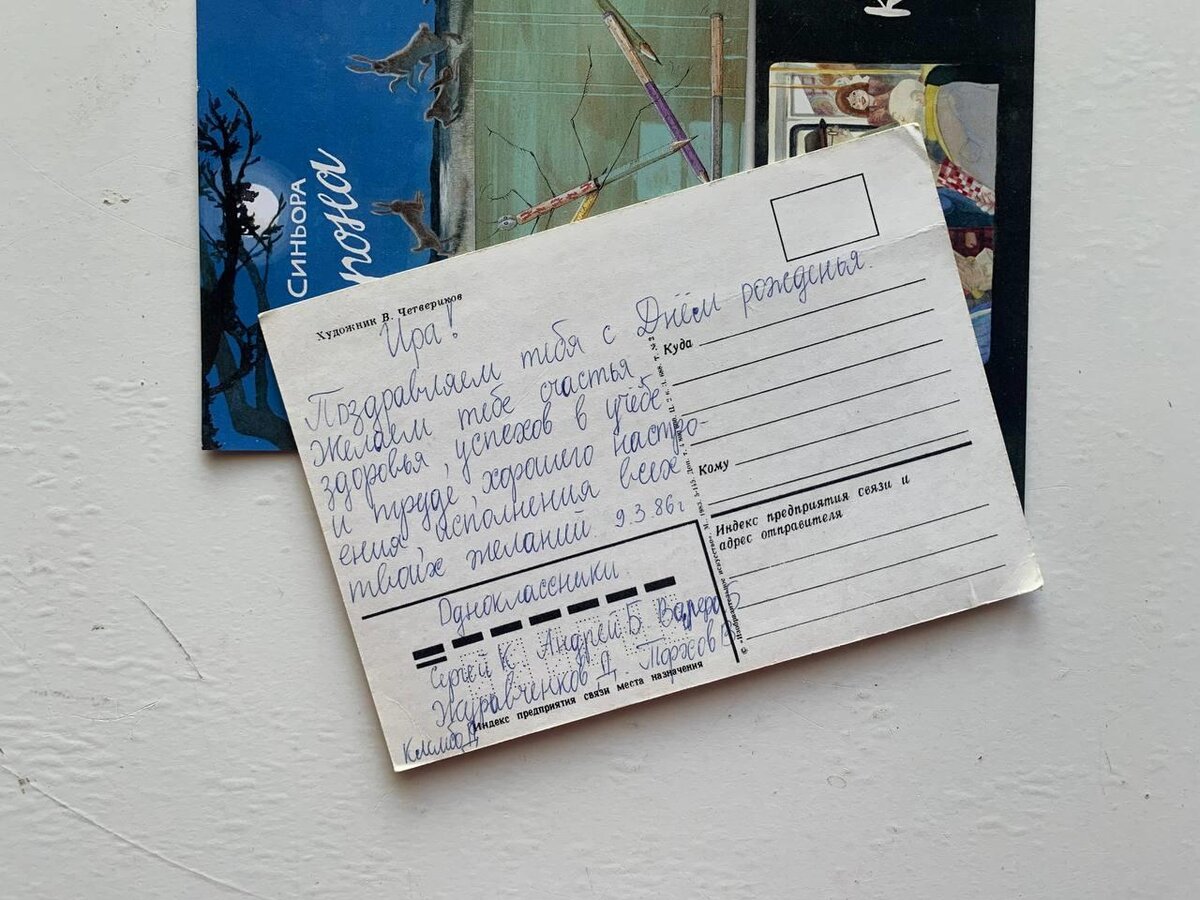 СИНЬОРА
рона
Художник В. Четвериков
Ира!
Поздравляем тебя с Днём рожденья.
Желаем тебе счастья
здоровья, успехов в учёбе
и труде, хорошего настро-
ения, исполнения всех
твоих желаний. 9.3.86г
Одноклассники.
Сергей К. Андрей Б. Валера Б
Журавченков Д. Торхов В
Куда
Кому
Индекс предприятия связи и
адрес отправителя
Индекс предприятия связи места назначения